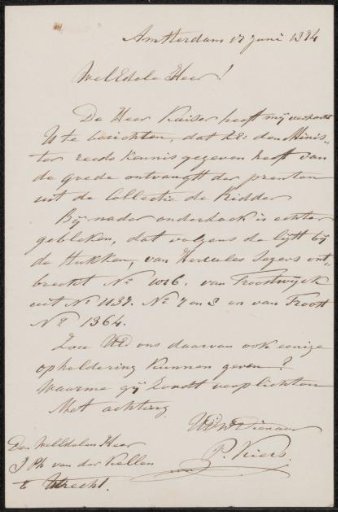 Amsterdam 17 Juni 1874
WelEdele Heer!
De Heer Kaiser heeft mij verzocht
U te berichten, dat hij den Minis-
ter reeds kennis gegeven heeft van
de goede ontvangst der prenten
uit de Collectie de Ridder
Bij nader onderzoek is echter
gebleken, dat volgens de lijst bij
de stukken, van Hercules Segers ont
breekt No 1026. van Troostwyck
uit No 1132. No 7 en 8 en van Troost
No 1364.
Zou UEd ons daarvan ook eenige
opheldering kunnen geven?
Waarmee gij zoudt verplichten
Met achting
UEdw Dienaar
P. Kiers.
Den WelEdelen Heer
J Ph van der Kellen
te Utrecht.